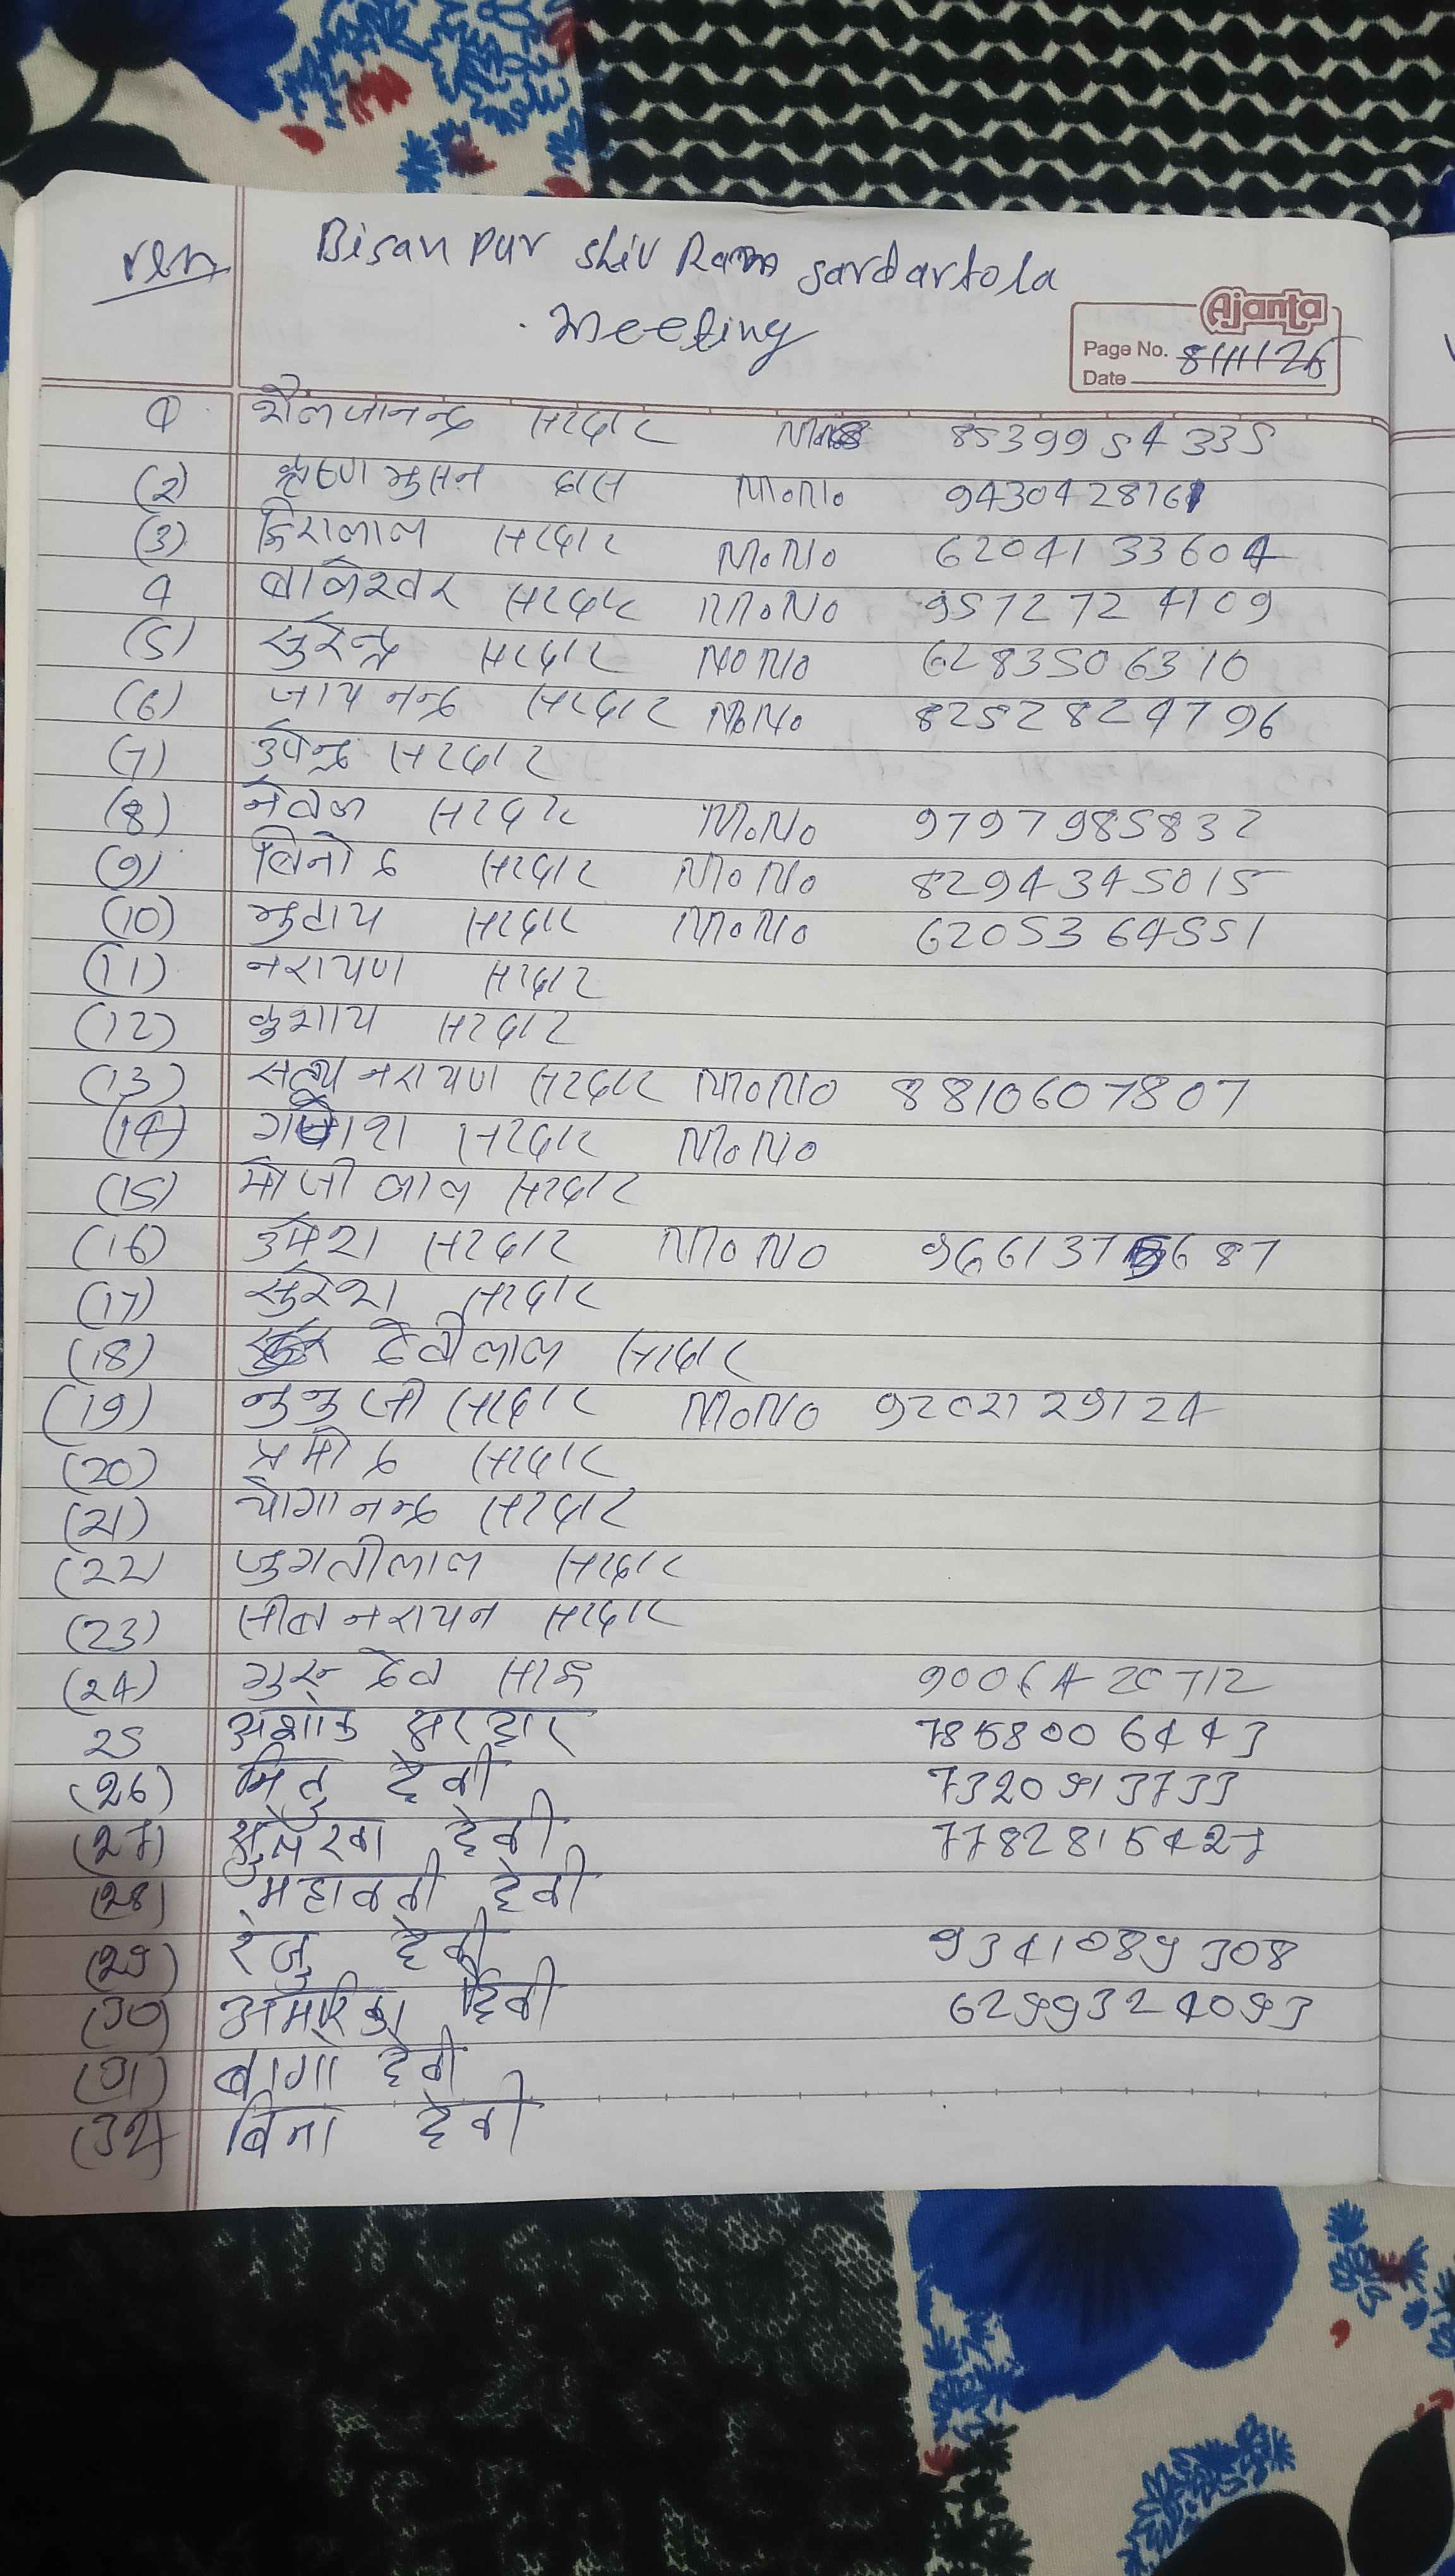 Bisanpur Shiv Ram sardartola
Meeting
Ajanta
Page No. 8/11/25
Date
1 शैलजानन्द सरदार M.No 8539954335
(2) कृष्ण भुसन दास M.No 9430428761
(3) हिरालाल सरदार M.No 6204133604
4 बालेश्वर सरदार M.No 9572724109
(5) सुरेन्द्र सरदार M.No 6283506310
(6) जाय नन्द सरदार M.No 8252824796
(7) उपेन्द्र सरदार
(8) नेवल सरदार M.No 9797985832
(9) विनोद सरदार M.No 8294345015
(10) भुटाय सरदार M.No 6205364551
(11) नरायण सरदार
(12) कुशाय सरदार
(13) सत्य नरायण सरदार M.No 8810607807
(14) गणेश सरदार M.No
(15) मौजी लाल सरदार
(16) उमेश सरदार M.No
(17) सुरेश सरदार
(18) देवीलाल सरदार
(19) नुनु जी सरदार M.No 9202129124
(20) प्रमोद सरदार
(21) योगानन्द सरदार
(22) जुगतीलाल सरदार
(23) सीत नरायन सरदार
(24) गुरु देव
25 अशोक सरदार 7858006443
(26) मितु देवी 7320913733
(27) सुलेखा देवी 7782815427
(28) महावती देवी
(29) रंजु देवी 9341089308
(30) अमेरिका देवी 6299324093
(31) बागो देवी
(32) बिना देवी